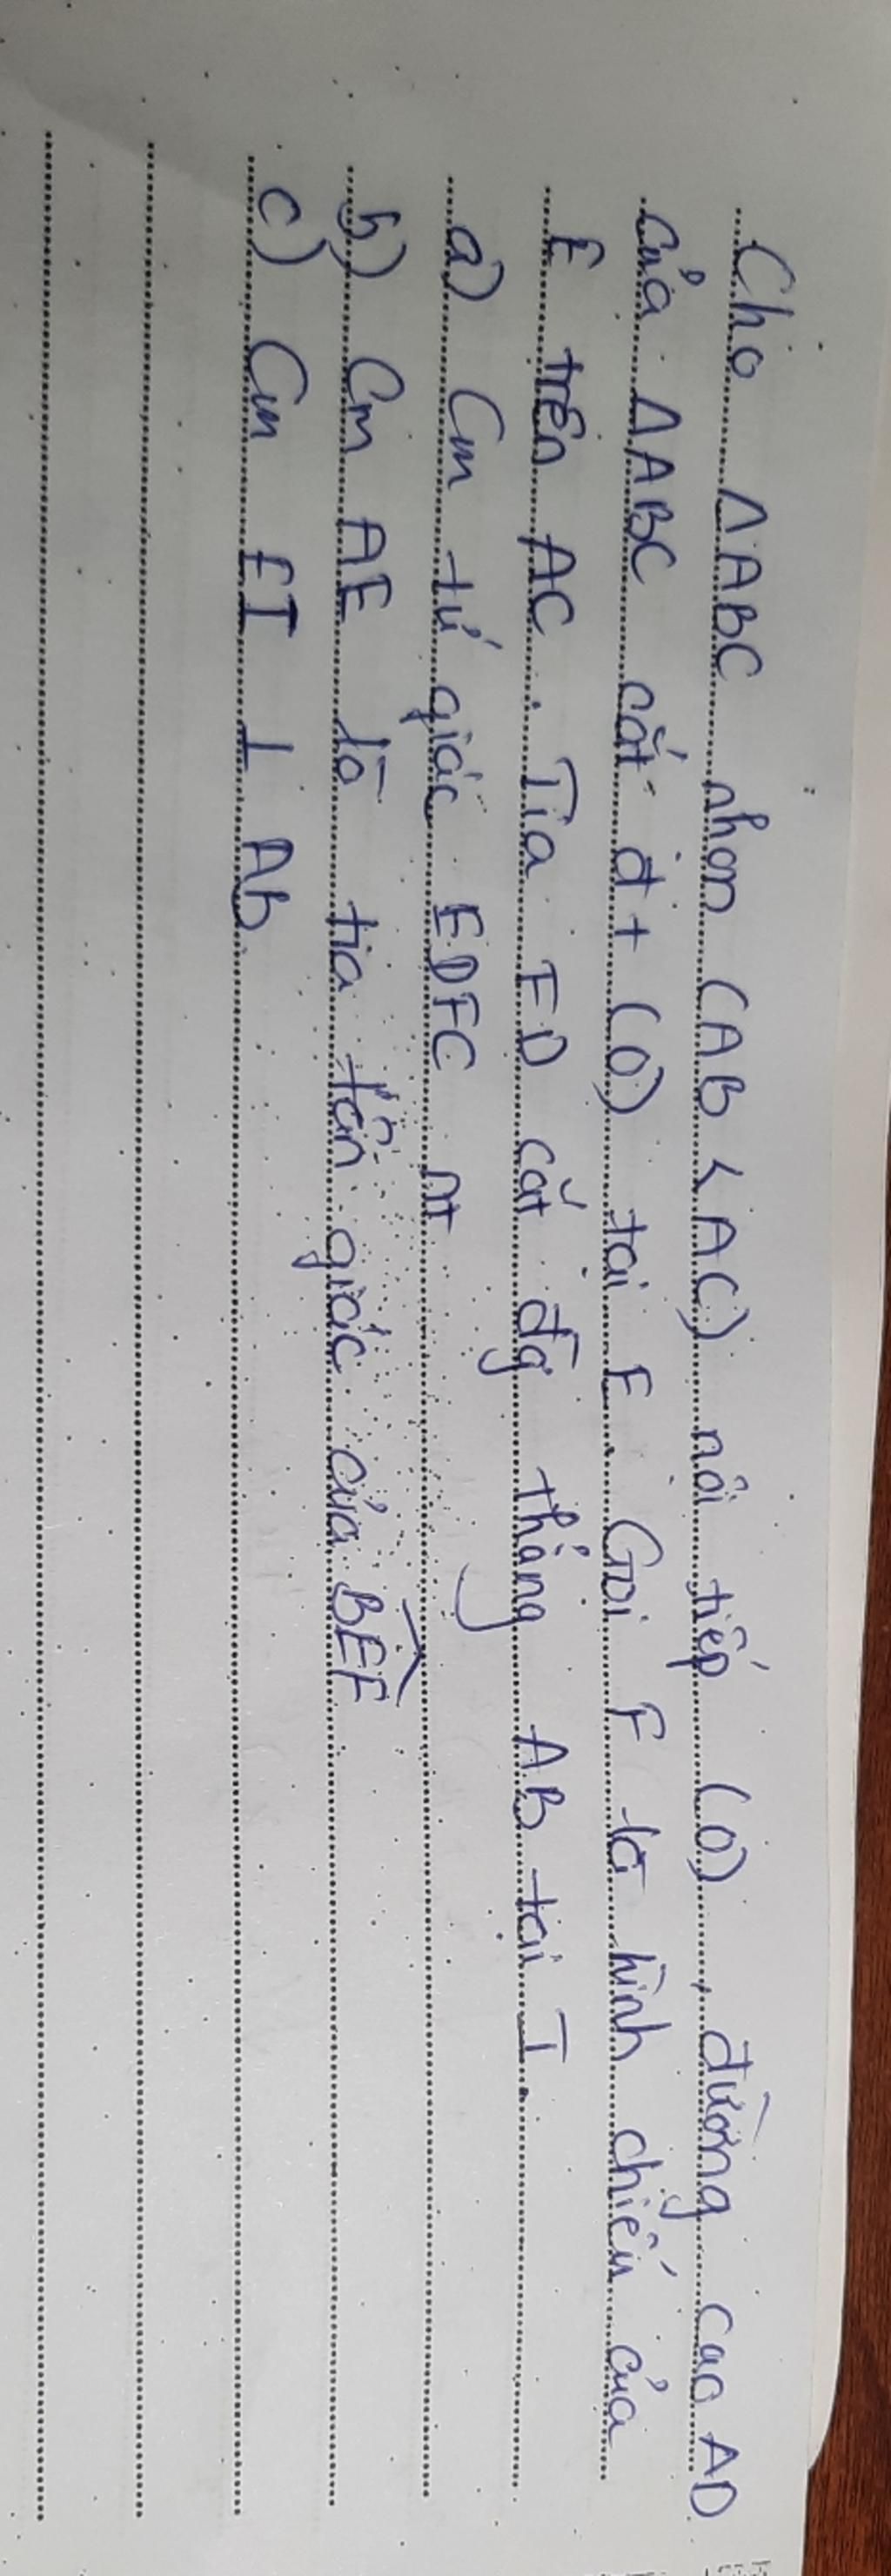 Cho ΔABC nhọn (AB < AC) nội tiếp (O), đường cao AD
của ΔABC cắt đt (O) tại E. Gọi F là hình chiếu của
E trên AC. Tia FD cắt đg thẳng AB tại I.
a) Cm tứ giác EDFC nt
b) Cm AE là tia fân giác của BEF
c) Cm EI ⊥ AB.